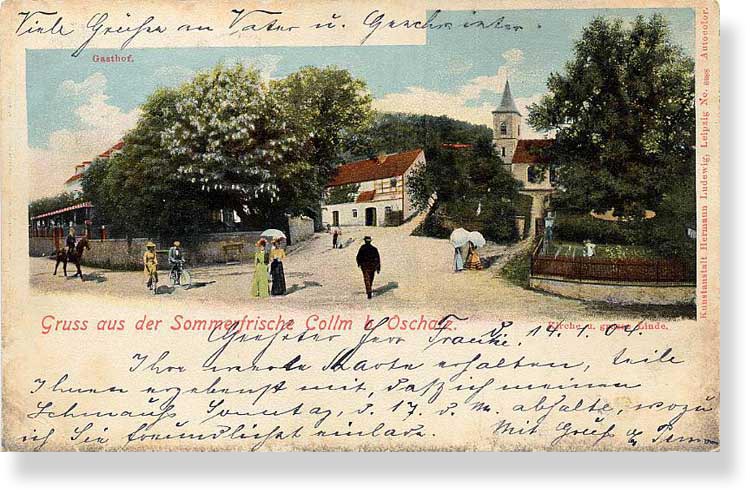 Viele Grüße an Vater u. Geschwister.
Gasthof.
Kunstanstalt Hermann Ludewig, Leipzig No. Autocolor.
Gruss aus der Sommerfrische Collm b. Oschatz.
Kirche u. grosse Linde.
Geehrter Herr d. 14. 1. 04.
Ihre werte Karte erhalten, teile
Ihnen ergebenst mit, daß ich meinen
Schmauß Sonntag, d. 17. d. M. abhalte, wozu
ich Sie freundlichst einlade. Mit Gruß